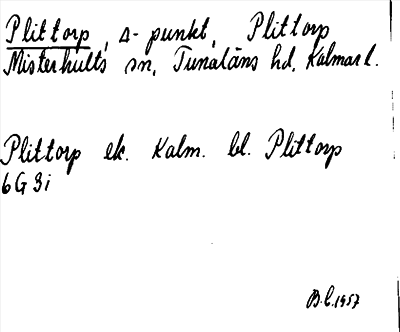 Plittorp, Δ-punkt, Plittorp
Misterhults sn, Tunaläns hd, Kalmar l.
Plittorp ek. Kalm. bl. Plittorp
6G 3i
B.L. 1957